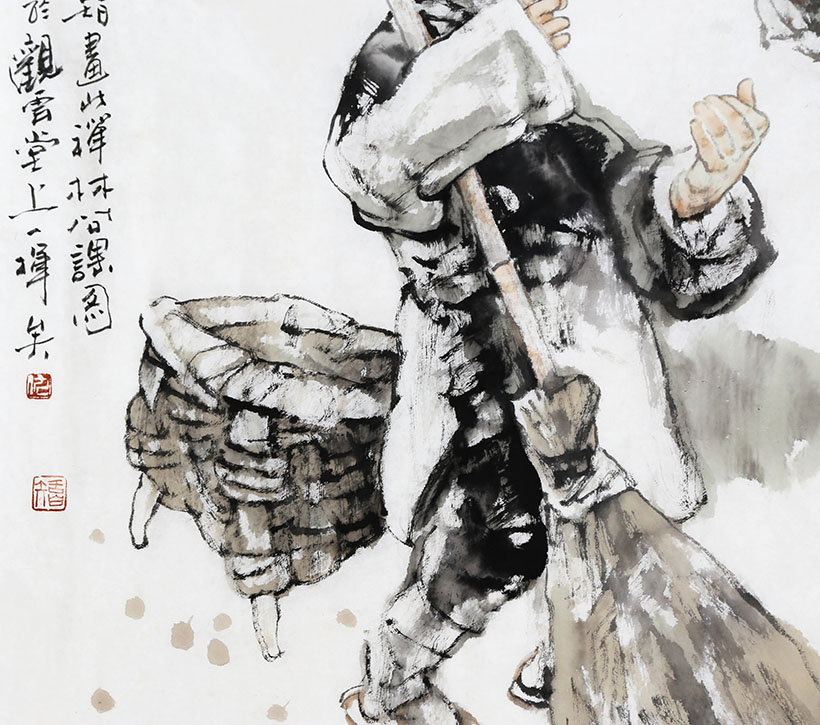 畫此禪林日課圖
於觀雲堂上一揮矣